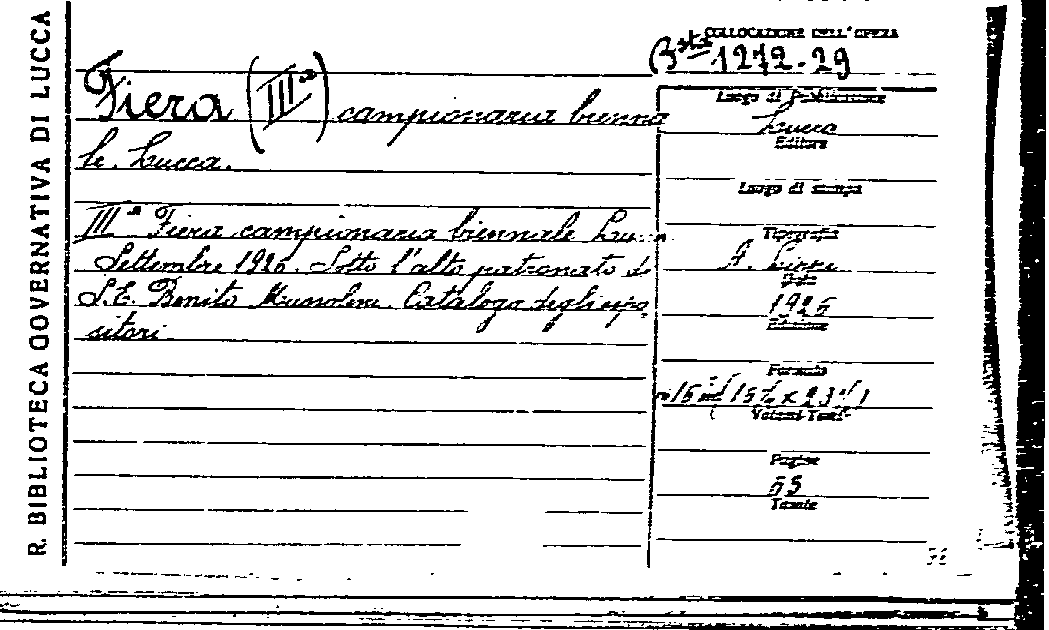 R. BIBLIOTECA GOVERNATIVA DI LUCCA
COLLOCAZIONE DELL'OPERA
Bsta 1272.29
Fiera (IIIª) campionaria bienna
le. Lucca.
IIIª Fiera campionaria biennale
Settembre 1926. Sotto l'alto patronato di
S.E. Benito Mussolini. Catalogo degli espo
sitori.
Luogo di Pubblicazione
Lucca
Editore
Luogo di stampa
Tipografia
A.
Data
1926
Edizione
Formato
in 16
Volumi Tomi
Pagine
Tavole